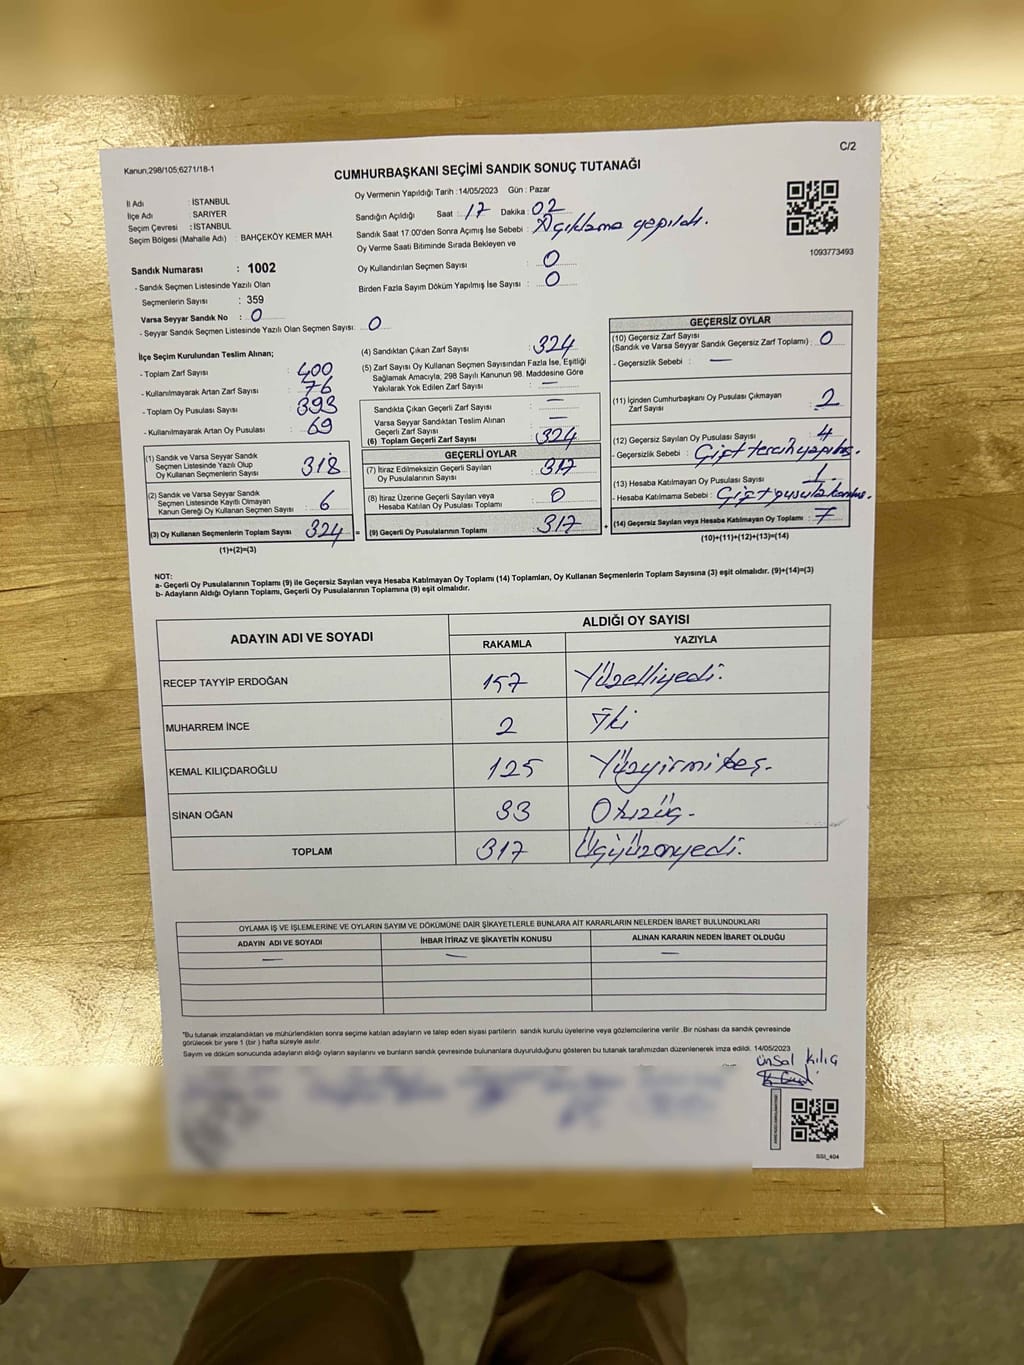 Kanun,298/105;6271/18-1
C/2
CUMHURBAŞKANI SEÇİMİ SANDIK SONUÇ TUTANAĞI
İl Adı : İSTANBUL
İlçe Adı : SARIYER
Seçim Çevresi : İSTANBUL
Seçim Bölgesi (Mahalle Adı) : BAHÇEKÖY KEMER MAH.
Oy Vermenin Yapıldığı Tarih :14/05/2023 Gün : Pazar
Sandığın Açıldığı Saat : 17 Dakika : 02
Sandık Saat 17:00'den Sonra Açımış İse Sebebi : Açıklama yapıldı.
Oy Verme Saati Bitiminde Sırada Bekleyen ve
Oy Kullandırılan Seçmen Sayısı : 0
Birden Fazla Sayım Döküm Yapılmış İse Sayısı : 0
1093773493
Sandık Numarası : 1002
- Sandık Seçmen Listesinde Yazılı Olan
Seçmenlerin Sayısı : 359
Varsa Seyyar Sandık No : 0
- Seyyar Sandık Seçmen Listesinde Yazılı Olan Seçmen Sayısı: 0
İlçe Seçim Kurulundan Teslim Alınan;
- Toplam Zarf Sayısı : 400
- Kullanılmayarak Artan Zarf Sayısı : 76
- Toplam Oy Pusulası Sayısı : 393
- Kullanılmayarak Artan Oy Pusulası : 69
(1) Sandık ve Varsa Seyyar Sandık
Seçmen Listesinde Yazılı Olup
Oy Kullanan Seçmenlerin Sayısı : 318
(2) Sandık ve Varsa Seyyar Sandık
Seçmen Listesinde Kayıtlı Olmayan
Kanun Gereği Oy Kullanan Seçmen Sayısı : 6
(3) Oy Kullanan Seçmenlerin Toplam Sayısı : 324
(1)+(2)=(3)
(4) Sandıktan Çıkan Zarf Sayısı : 324
(5) Zarf Sayısı Oy Kullanan Seçmen Sayısından Fazla İse, Eşitliği
Sağlamak Amacıyla, 298 Sayılı Kanunun 98. Maddesine Göre
Yakılarak Yok Edilen Zarf Sayısı : —
Sandıkta Çıkan Geçerli Zarf Sayısı : —
Varsa Seyyar Sandıktan Teslim Alınan
Geçerli Zarf Sayısı : —
(6) Toplam Geçerli Zarf Sayısı : 324
GEÇERLİ OYLAR
(7) İtiraz Edilmeksizin Geçerli Sayılan
Oy Pusulalarının Sayısı : 317
(8) İtiraz Üzerine Geçerli Sayılan veya
Hesaba Katılan Oy Pusulası Toplamı : 0
= (9) Geçerli Oy Pusulalarının Toplamı : 317
GEÇERSİZ OYLAR
(10) Geçersiz Zarf Sayısı
(Sandık ve Varsa Seyyar Sandık Geçersiz Zarf Toplamı) : 0
- Geçersizlik Sebebi : —
(11) İçinden Cumhurbaşkanı Oy Pusulası Çıkmayan
Zarf Sayısı : 2
(12) Geçersiz Sayılan Oy Pusulası Sayısı : 4
- Geçersizlik Sebebi : Çift tercih yapılmış.
(13) Hesaba Katılmayan Oy Pusulası Sayısı : 1
- Hesaba Katılmama Sebebi : Çift pusula
+ (14) Geçersiz Sayılan veya Hesaba Katılmayan Oy Toplamı : 7
(10)+(11)+(12)+(13)=(14)
NOT:
a- Geçerli Oy Pusulalarının Toplamı (9) ile Geçersiz Sayılan veya Hesaba Katılmayan Oy Toplamı (14) Toplamları, Oy Kullanan Seçmenlerin Toplam Sayısına (3) eşit olmalıdır. (9)+(14)=(3)
b- Adayların Aldığı Oyların Toplamı, Geçerli Oy Pusulalarının Toplamına (9) eşit olmalıdır.
ADAYIN ADI VE SOYADI
ALDIĞI OY SAYISI
RAKAMLA YAZIYLA
RECEP TAYYİP ERDOĞAN 157 Yüzelliyedi.
MUHARREM İNCE 2 İki
KEMAL KILIÇDAROĞLU 125 Yüzyirmibeş.
SİNAN OĞAN 33 Otuzüç.
TOPLAM 317 Üçyüzonyedi.
OYLAMA İŞ VE İŞLEMLERİNE VE OYLARIN SAYIM VE DÖKÜMÜNE DAİR ŞİKAYETLERLE BUNLARA AİT KARARLARIN NELERDEN İBARET BULUNDUKLARI
ADAYIN ADI VE SOYADI İHBAR İTİRAZ VE ŞİKAYETİN KONUSU ALINAN KARARIN NEDEN İBARET OLDUĞU
— — —
*Bu tutanak imzalandıktan ve mühürlendikten sonra seçime katılan adayların ve talep eden siyasi partilerin sandık kurulu üyelerine veya gözlemcilerine verilir. Bir nüshası da sandık çevresinde
görülecek bir yere 1 (bir) hafta süreyle asılır.
Sayım ve döküm sonucunda adayların aldığı oyların sayılarını ve bunların sandık çevresinde bulunanlara duyurulduğunu gösteren bu tutanak tarafımızdan düzenlenerek imza edildi. 14/05/2023
Ünsal Kılıç
SSI_404